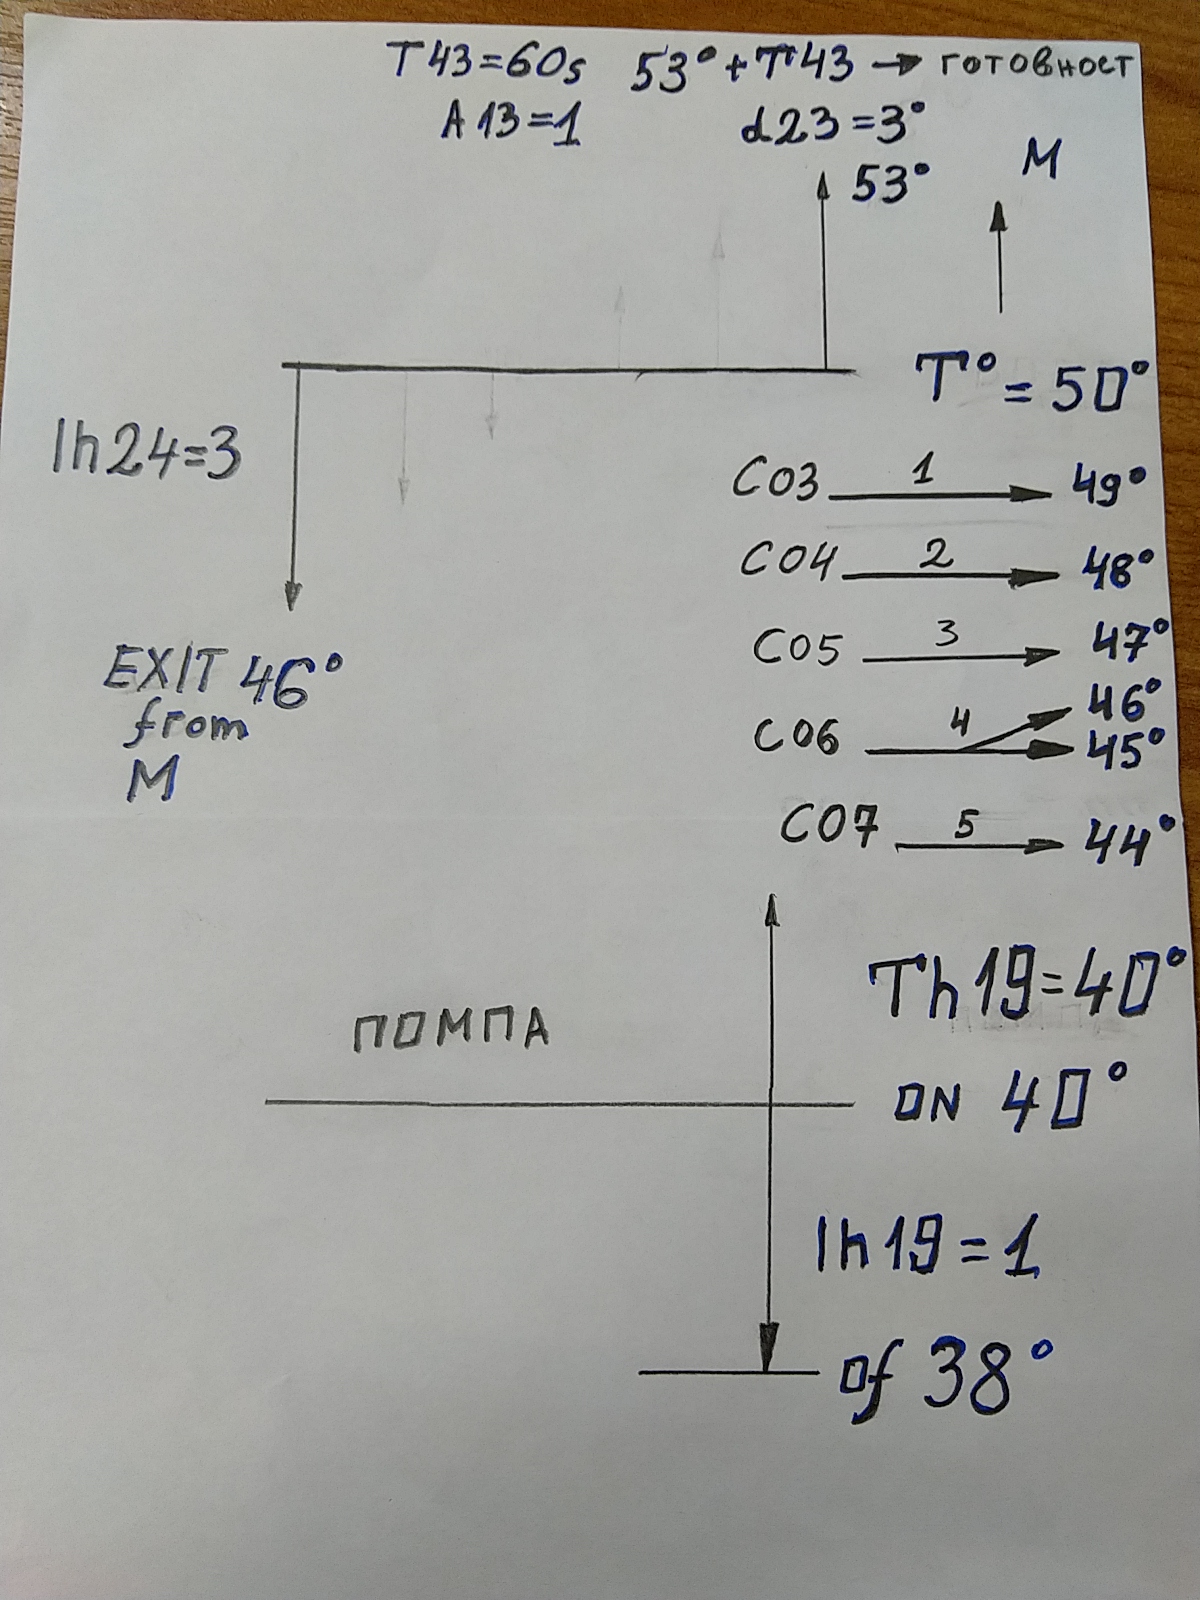 T43=60s 53°+T43 → готовност
A13=1 d23=3°
53° M
T°=50°
Ih24=3
CO3 1 49°
CO4 2 48°
CO5 3 47°
CO6 4 46°
45°
EXIT 46°
from
M
CO7 5 44°
Th19=40°
ПОМПА
ON 40°
Ih19=1
of 38°